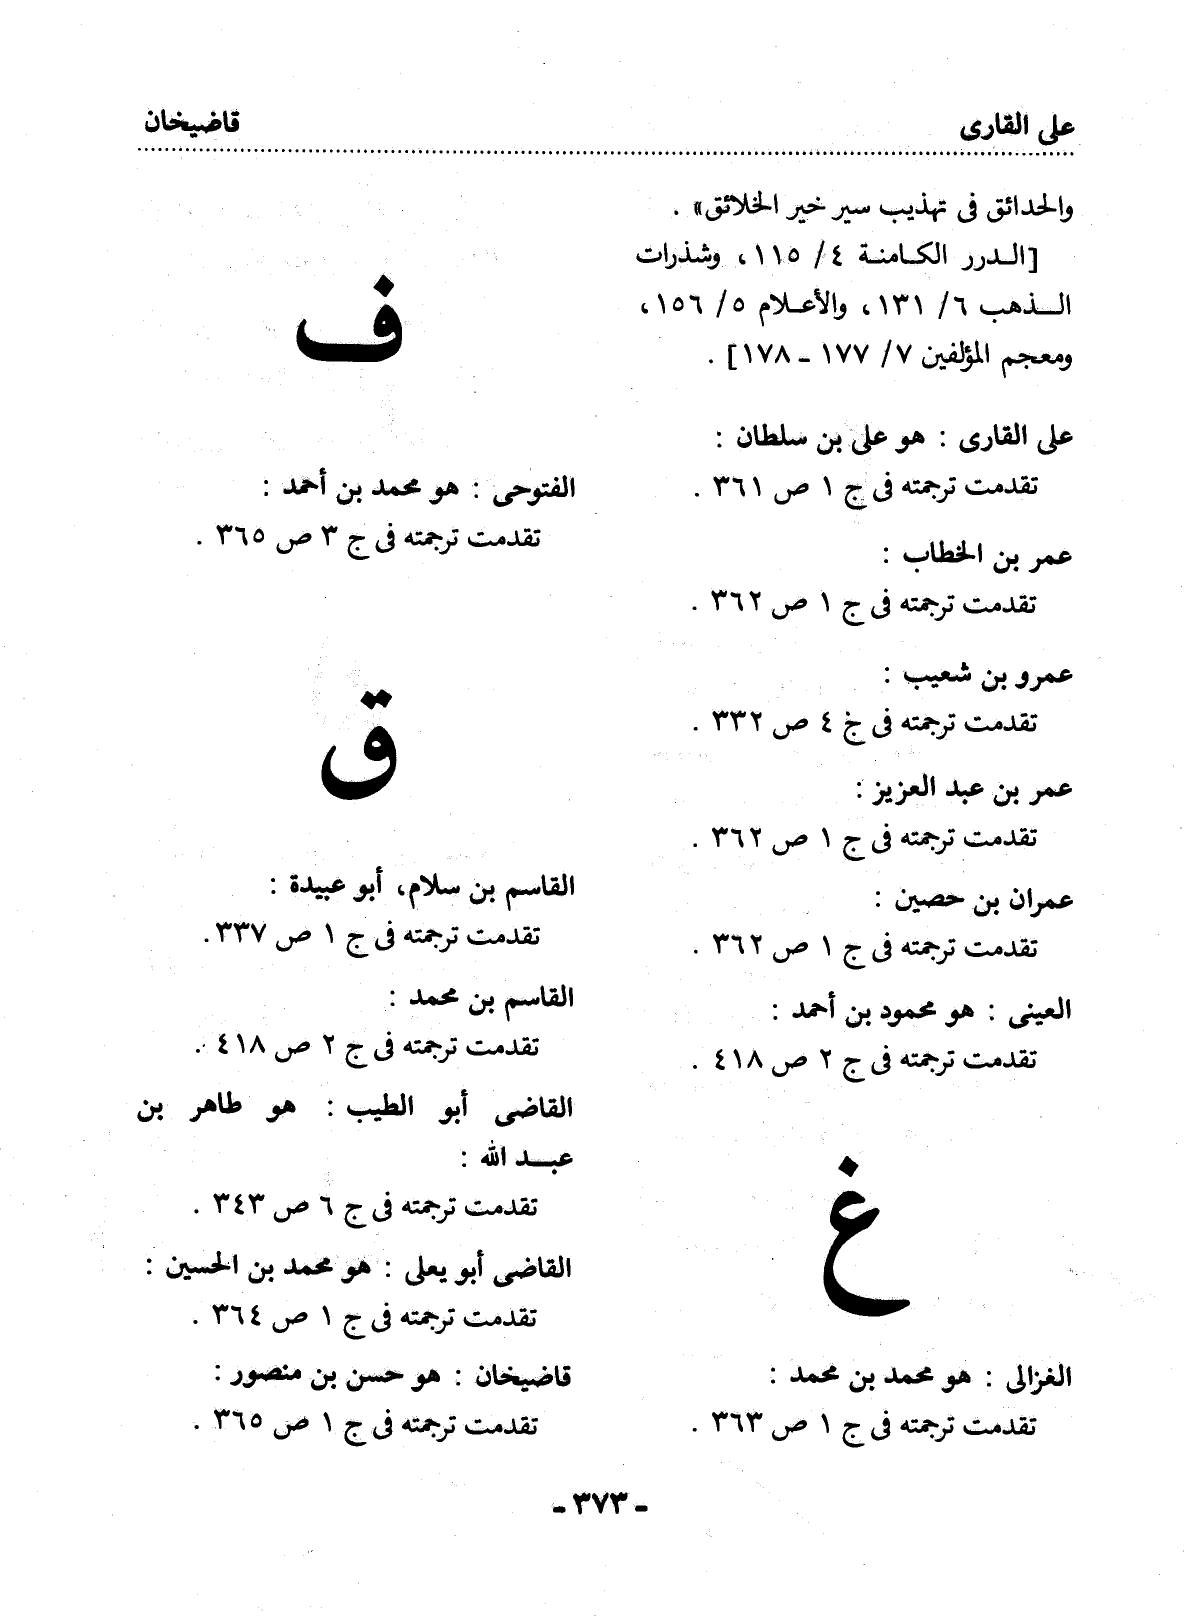 على القارى
قاضيخان
والحدائق فى تهذيب سير خير الخلائق» .
[الدرر الكامنة ٤/ ١١٥، وشذرات
الذهب ٦/ ١٣١، والأعلام ٥/ ١٥٦،
ومعجم المؤلفين ٧/ ١٧٧ - ١٧٨] .
على القارى : هو على بن سلطان :
تقدمت ترجمته فى ج ١ ص ٣٦١ .
عمر بن الخطاب :
تقدمت ترجمته فى ج ١ ص ٣٦٢ .
عمرو بن شعيب :
تقدمت ترجمته فى خ ٤ ص ٣٣٢ .
عمر بن عبد العزيز :
تقدمت ترجمته فى ج ١ ص ٣٦٢ .
عمران بن حصين :
تقدمت ترجمته فى ج ١ ص ٣٦٢ .
العينى : هو محمود بن أحمد :
تقدمت ترجمته فى ج ٢ ص ٤١٨ .
غ
الغزالى : هو محمد بن محمد :
تقدمت ترجمته فى ج ١ ص ٣٦٣ .
ف
الفتوحى : هو محمد بن أحمد :
تقدمت ترجمته فى ج ٣ ص ٣٦٥ .
ق
القاسم بن سلام، أبو عبيدة :
تقدمت ترجمته فى ج ١ ص ٣٣٧.
القاسم بن محمد :
تقدمت ترجمته فى ج ٢ ص ٤١٨ .
القاضى أبو الطيب : هو طاهر بن
عبد الله :
تقدمت ترجمته فى ج ٦ ص ٣٤٣ .
القاضى أبو يعلى : هو محمد بن الحسين :
تقدمت ترجمته فى ج ١ ص ٣٦٤ .
قاضيخان : هو حسن بن منصور :
تقدمت ترجمته فى ج ١ ص ٣٦٥ .
- ٣٧٣ -